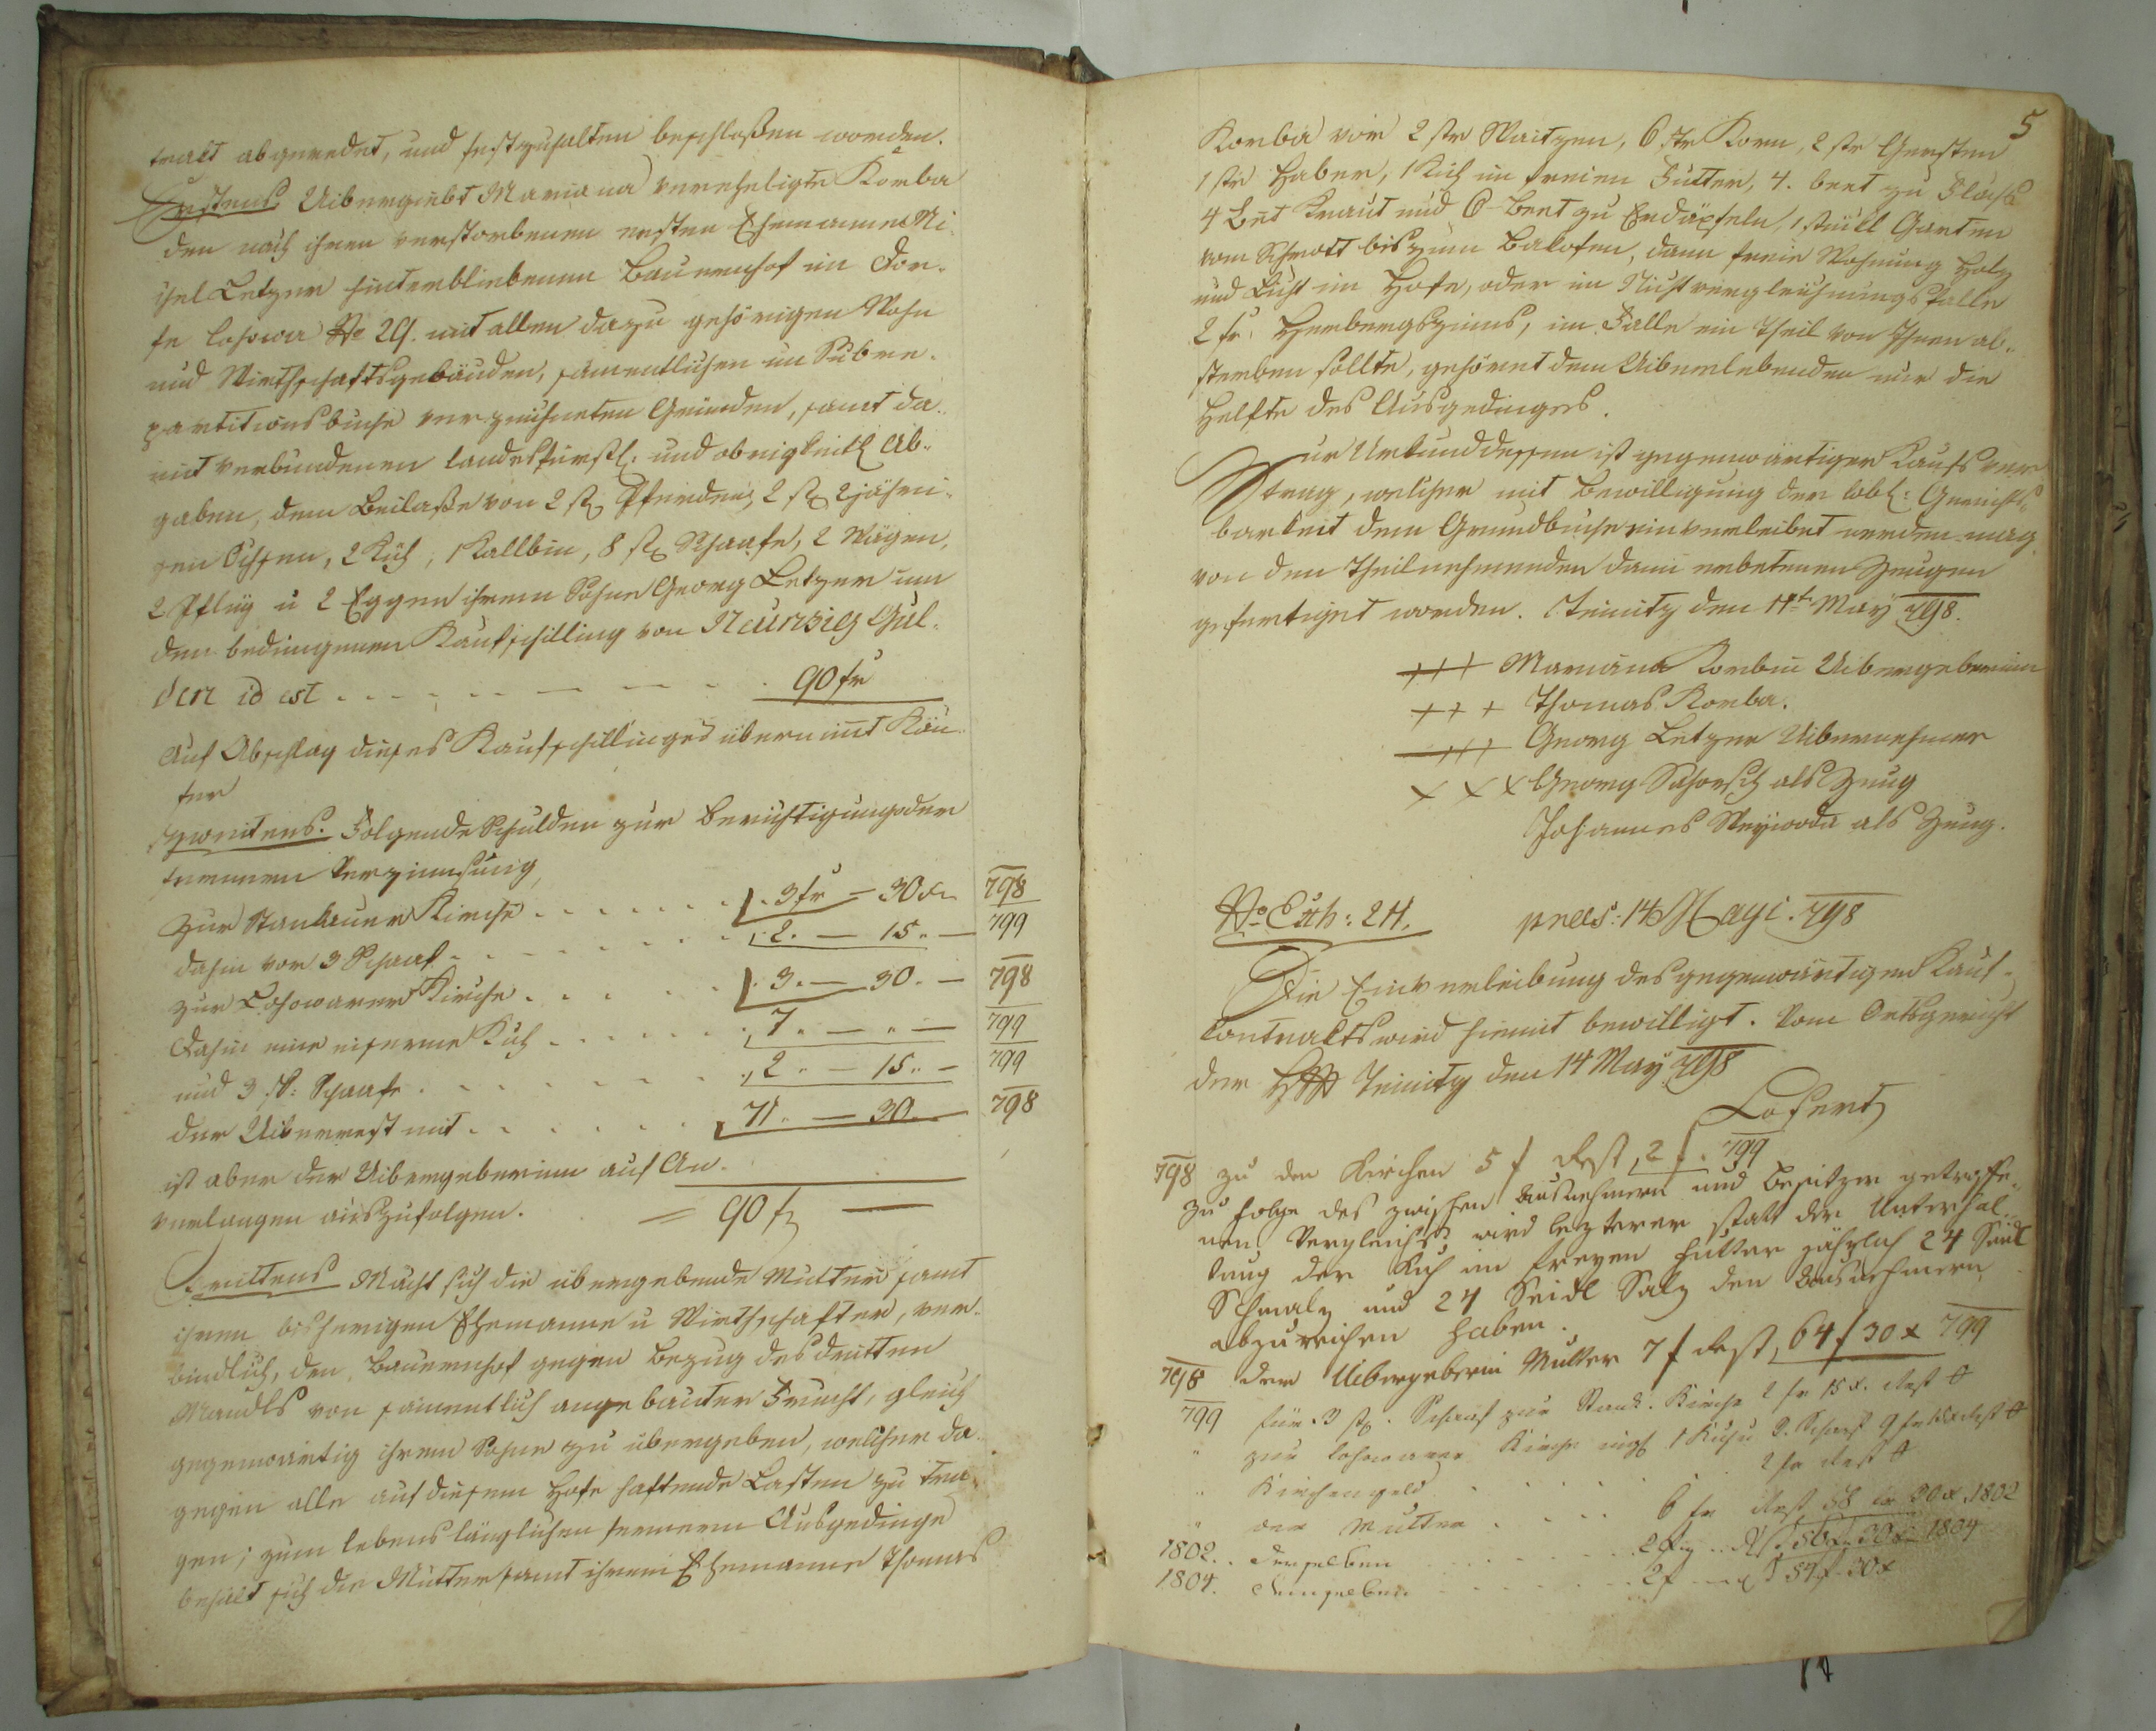 trakt abgeredet, und festzuhalten beschloßen worden.
Erstens. Uibergiebt Mariana verehligte Korba
den nach ihren verstorbenen ersten Ehemanne Mi-
chel Letzer hinterbliebenen Bauernhof im Dor-
fe Lohowa No 29. mit allen dazu gehörigen Wohn
und Wirthschaftsgebäuden, samentlichen im Subre-
partitionsbuche verzeichneten Gründen, samt da-
mit verbundenen landesfürstl: und obrigkeitl Ab-
gaben, dem Beilaße von 2 st Pferden, 2 st 2jähri-
gen Ochsen, 2 Küh, 1 Kallbin, 8 st Schaafe, 2 Wägen,
2 Pflüg u 2 Eggen ihrem Sohne Georg Letzer um
den bedingenen Kaufschilling von Neunzig Gul-
den id est . . . . . . . 90 fr
Auf Abschlag dieses Kaufschillinges übernimt Käu-
fer
Zweitens. Folgende Schulden zur Berichtigung oder
fernern Verzinnsung,
Zur Stankauer Kirche . . . . . . 3 fr – 30 xr 798
dahin vor 3 Schaaf . . . . . . 2. – 15. – 799
zur Lohowaer Kirche . . . . . . 3. – 30. – 798
dahin eine eiserne Kuh . . . . . . 7. – . – 799
und 3 st: Schaafe . . . . . . 2. – 15. – 799
der Uiberrest mit . . . . . . 71. – 30. – 798
ist aber der Uibergeberinn auf An-
verlangen auszufolgen. = 90 fr
Drittens Macht sich die übergebende Mutter samt
ihren bisherigen Ehemanne u Wirthschafter, ver-
bindlich, den Bauernhof gegen Bezug des dritten
Mandls von samentlich angebauter Frucht, gleich
gegenwärtig ihrem Sohne zu übergeben, welcher da-
gegen alle auf diesem Hofe haftende Lasten zu tra-
gen; zum lebenslänglichen fernern Ausgedinge
behält sich die Mutter samt ihrem Ehemanne Thomas
5
Korba vor 2 str Waitzen, 6 str Korn, 2 str Gersten
1 str Haber, 1 Kuh im freien Futter, 4. beet zu Flachs
4 Bet Kraut und 6 Beet zu Erdäpfeln, 1 stückl Garten
vom bis zum Bakofen, dann freie Wohnung Holz
und Licht im Hofe, oder im Nichtvergleichungsfalle
2 fr. Herbergszinns, im Falle ein Theil von Ihnen ab-
sterben sollte, gehöret dem Uiberlebenden nur die
Helfte des Ausgedinges.
Zur Urkund dessen ist gegenwärtiger Kaufsver
trag, welcher mit Bewilligung der löbl: Gerichts-
barkeit dem Grundbuche einverleibet werden mag
von den Theilnehmenden dann erbetenen Zeugen
gefertiget worden. Teinitz den 14t May 798.
+++ Mariana Korbin Uibergeberinn
+++ Thomas Korba.
+++ Georg Letzer Uibernehmer
x x x Georg als Zeug
Johannes als Zeug.
No Exh: 211. praes: 14 Mayi. 798
Die Einverleibung des gegenwärtigen Kauf-
Contrakts wird hiemit bewilligt. Vom Ortsgericht
der Teinitz den 14 May 798
798 zu den Kirchen 5 f Rest 2 f. 799
Zu Folge des zwischen Ausnehmern und Besitzer getroffe-
nen Vergleichs wird lezterer statt der Unterhal-
tung der Kuh im freyen Futter jährlich 24 Seidl
Schmalz und 24 Seidl Salz den Ausnehmern
abzureichen haben.
798 der Uibergeberin Mutter 7 f Rest, 64 f 30 x 799
799 für 3 st. Schaaf zur Stank. Kirche 2 fr 15 x. Rest
" zur Lohowaer Kirche 1 Kuh u 3. Schaaf 9 fr 15 x Rest
" Kirchengeld . . . . 2 fr Rest
" der Mutter . . . . 6 fr Rest 58 fr 30 x. 1802
1802. . derselben . . . . 2 f . . Rst 56 f 30 x 1804
1804. derselben . . . . 2 f 54 f 30 x